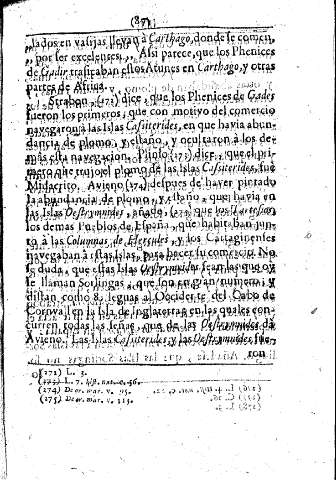 (87)
„lados en vasijas llevan à Carthago, donde se comen,
„por ser excelentes. „ Asi parece, que los Phenices
de Gadir traficaban estos Atunes en Carthago, y otras
partes de Africa.
Strabon (272) dice, que los Phenices de Gades
fueron los primeros, que con motivo del comercio
navegaron à las Islas Casiterides, en que havia abun-
dancia de plomo, y estaño, y ocultaron à los de-
màs esta navegacion. Plinio (273) dice, que el pri-
mero que trujo el plomo de las Islas Casiterides, fue
Midacrito. Avieno (274) despues de haver pintado
la abundancia de plomo, y estaño, que havia en
las Islas Oestrymnides, añade, (275) que los Tartesios,
los demas Pueblos de España, que habitaban jun-
to à las Columnas de Hercules, y los Cartagineses
navegaban à estas Islas, para hacer su comercio. No
se duda, que estas Islas Oestrymnides sean las que oy
se llaman Sorlingas, que son en gran numero, y
distan como 8. leguas al Occidente del Cabo de
Cornval, en la Isla de Inglaterra, en las quales con-
curren todas las señas, que de las Oestrymnides da
Avieno. Las Islas Casiterides, y las Oestrymnides, fue-
ron
(272) L. 3.
(273) L. 7. hist. nat. c. 56.
(274) De or. mar. v. 95.
(275) De or. mar. v. 113.